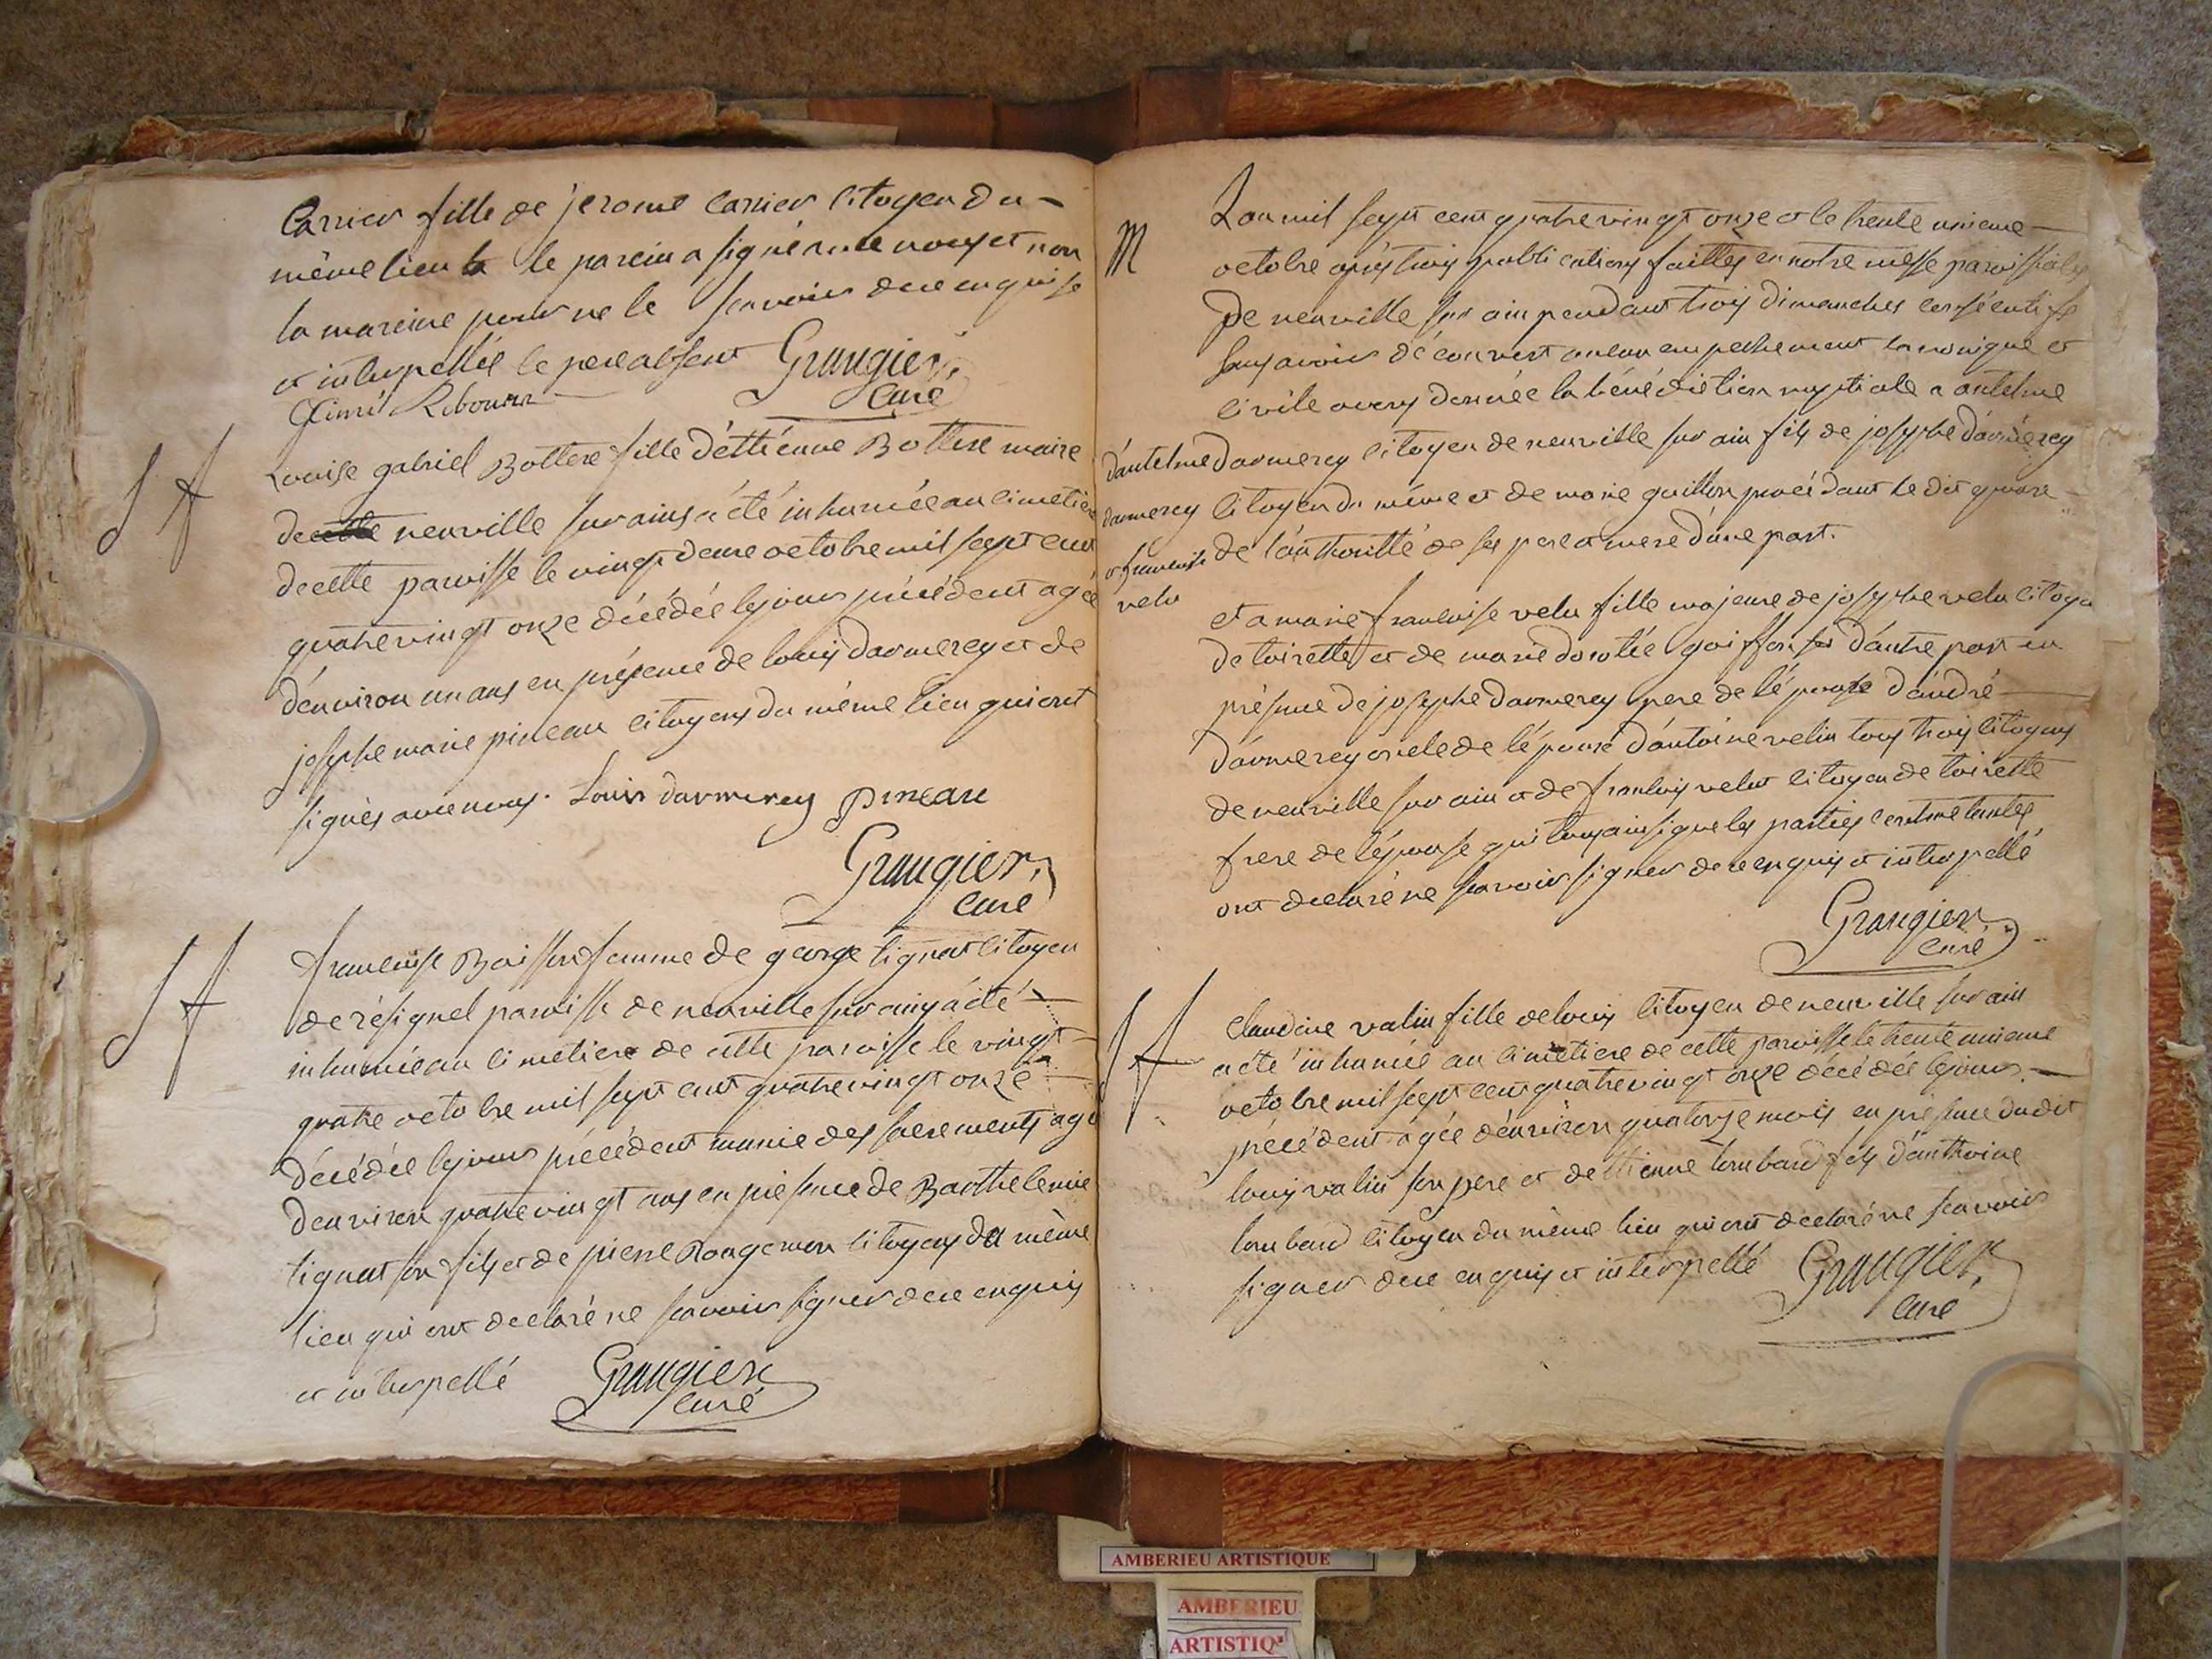 Carrier fille de jerome carrier citoyen du
même lieu le parein a signé avec nous et non
la mareine pour ne le scavoir de ce enquise
et interpellée le pere absent Grangier,
Curé
Aimé Reboux
Louise gabriel Bottere fille d'éttienne Bottere maire
de neuville sur ains a été inhumée au cimetiere
de cette paroisse le vingt deux octobre mil sept cent
quatre vingt onze décédée le jour précédent agée
d'environ un ans en présence de louis darmerey et de
josephe marie pineau citoyens du même lieu qui ont
signés avec nous. Louis darmerey pineau
Grangier,
Curé
francoise Boisson femme de george tignat citoyen
de résignel paroisse de neuville sur ains a été
inhumée au cimetiere de cette paroisse le vingt
quatre octobre mil sept cent quatre vingt onze
décédée le jour précédent munie des sacrements agé
d'environ quatre vingt ans en présence de Barthelemie
tignat son fils et de pierre Rougemon citoyens du même
lieu qui ont declaré ne scavoir signer de ce enquis
et interpellé Grangier
Curé
M
L'an mil sept cent quatre vingt onze et le trente unieme
octobre après trois publications faittes en notre messe paroissiale
de neuville sur ain pendant trois dimanches consécutifs
sans avoir découvert aucun empechement canonique et
civile avons donnée la bénédiction nuptiale a antelme
d'antelme darmerey citoyen de neuville sur ain fils de josephe darmerey
darmerey citoyen du même et de marie guillon procédant le dit
et francoise de l'authorité de ses pere et mere d'une part.
velu
et a marie francoise velu fille majeure de josephe velu citoyen
de toirette et de marie dorotée goiffon d'autre part en
présence de josephe darmerey pere de l'époux d'andré
darmerey oncle de l'époux d'antoine velin tous trois citoyens
de neuville sur ain et de francois velut citoyen de toirette
frere de l'épouse qui tous ainsi que les parties contractantes
ont declaré ne scavoir signer de ce enquis et interpellé
Grangier
Curé
Claudine valin fille de louis citoyen de neuville sur ain
a été inhumée au cimetiere de cette paroisse le trente unieme
octobre mil sept cent quatre vingt onze décédée le jour
précédent agée d'environ quatorze mois en présence dudit
louis valin son pere et d'ettienne lombard fils d'anthoine
lombard citoyen du même lieu qui ont declaré ne scavoir
signer de ce enquis et interpellé Grangier,
Curé
AMBERIEU ARTISTIQUE
AMBERIEU
ARTISTIQ